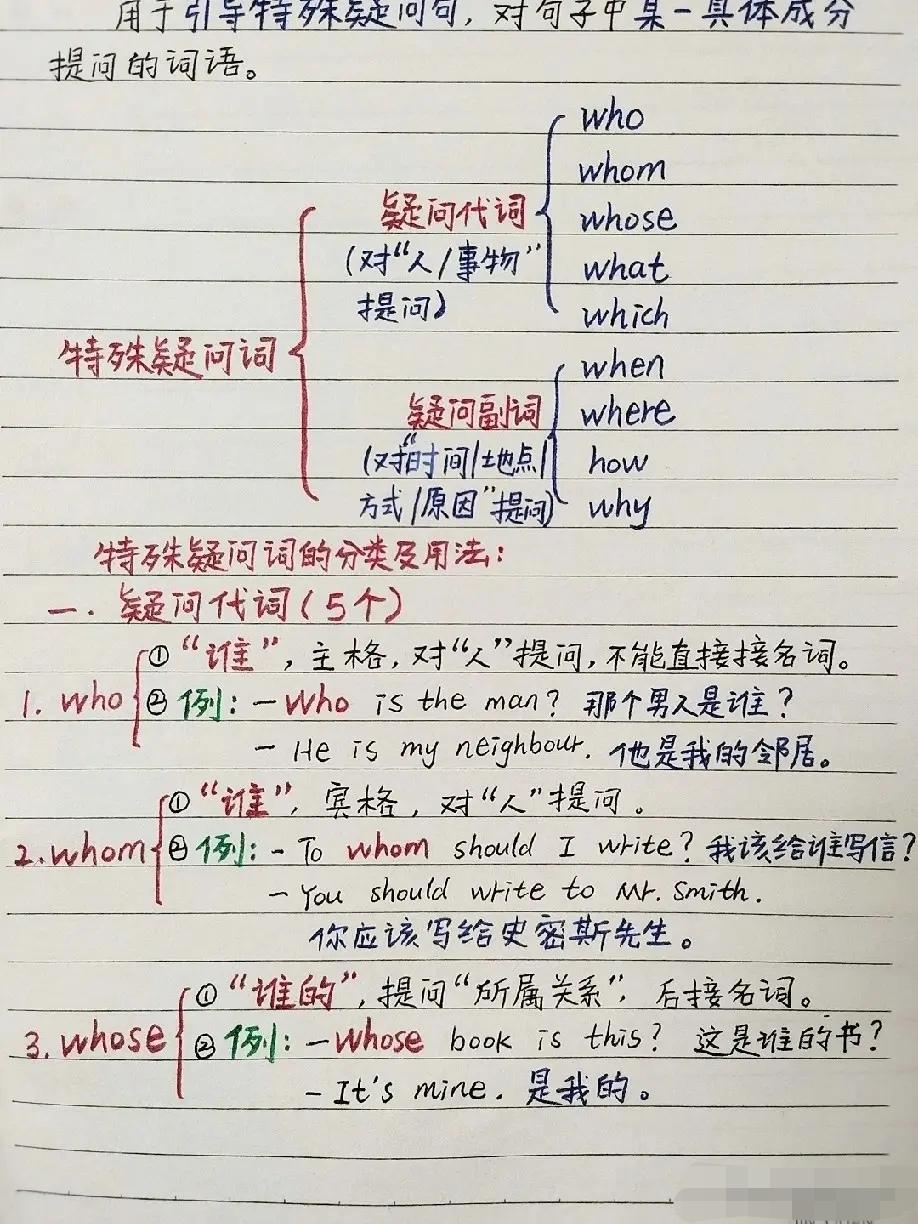 用于引导特殊疑问句，对句子中某一具体成分
提问的词语。
who
whom
疑问代词
whose
(对“人/事物”
what
提问)
which
特殊疑问词
when
疑问副词
where
(对“时间/地点/
how
方式/原因”提问)
why
特殊疑问词的分类及用法：
一. 疑问代词(5个)
① “谁”，主格，对“人”提问，不能直接接名词。
1. who ② 例：- Who is the man? 那个男人是谁？
- He is my neighbour. 他是我的邻居。
① “谁”，宾格，对“人”提问。
2. whom ② 例：- To whom should I write? 我该给谁写信？
- You should write to Mr. Smith.
你应该写给史密斯先生。
① “谁的”，提问“所属关系”，后接名词。
3. whose ② 例：- Whose book is this? 这是谁的书？
- It's mine. 是我的。